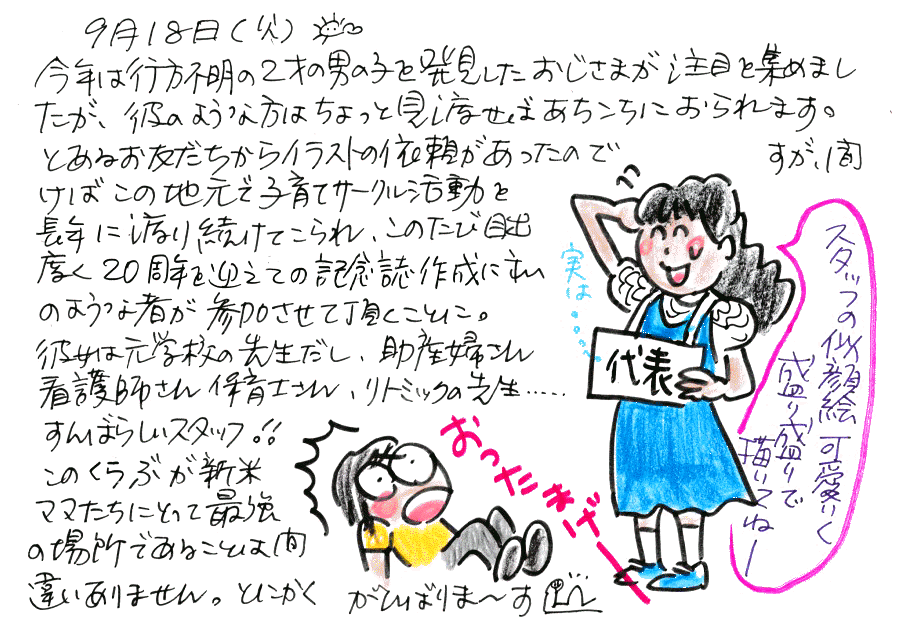 9月18日(火)
今年は行方不明の2才の男の子を発見したおじさまが注目を集めまし
たが、彼のような方はちょっと見渡せばあちこちにおられます。
とあるお友だちからイラストの依頼があったので
すが、聞
けばこの地元で子育てサークル活動を
長年に渡り続けてこられ、このたび目出
度く20周年を迎えての記念誌作成に私
のような者が参加させて頂くことに。
彼女は元学校の先生だし、助産婦さん
看護師さん保育士さん、リトミックの先生……
すんばらしいスタッフ!!
このくらぶが新米
ママたちにとって最強
の場所であることは間
違いありません。とにかく がんばりま〜す
実は……
代表
スタッフの似顔絵可愛いく
盛り盛りで
描いてねー
おったまげー